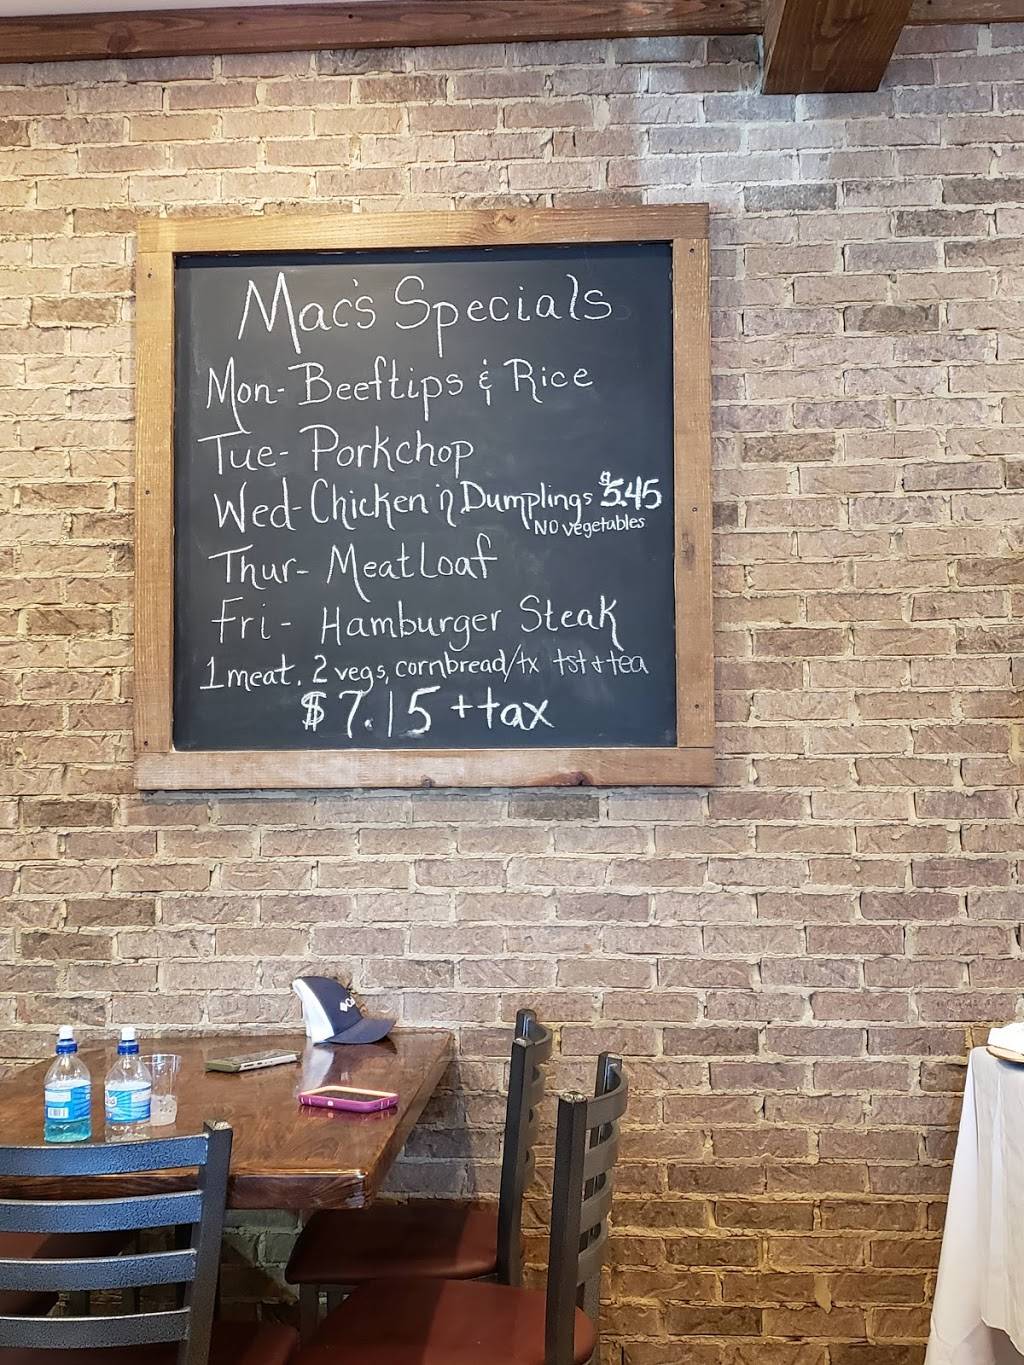 Mac's Specials
Mon- Beeftips & Rice
Tue- Porkchop
Wed- Chicken 'n Dumplings $5.45
NO vegetables
Thur- MeatLoaf
Fri- Hamburger Steak
1 meat, 2 vegs, cornbread/tx tst & tea
$7.15 + tax